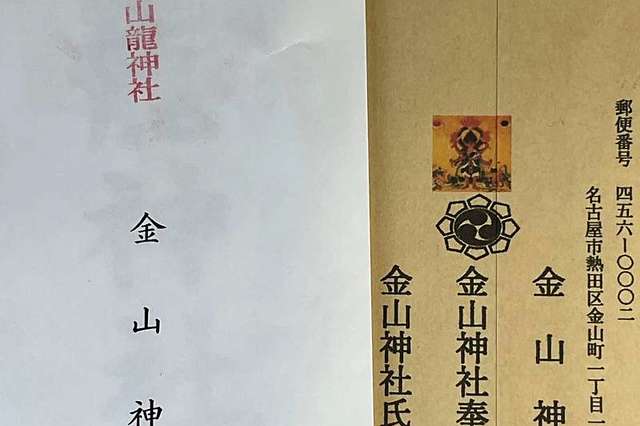 郵便番号 四五六ー〇〇〇二
名古屋市熱田区金山町一丁目
金山神
金山神社奉
金山神社氏
山龍神社
金山神